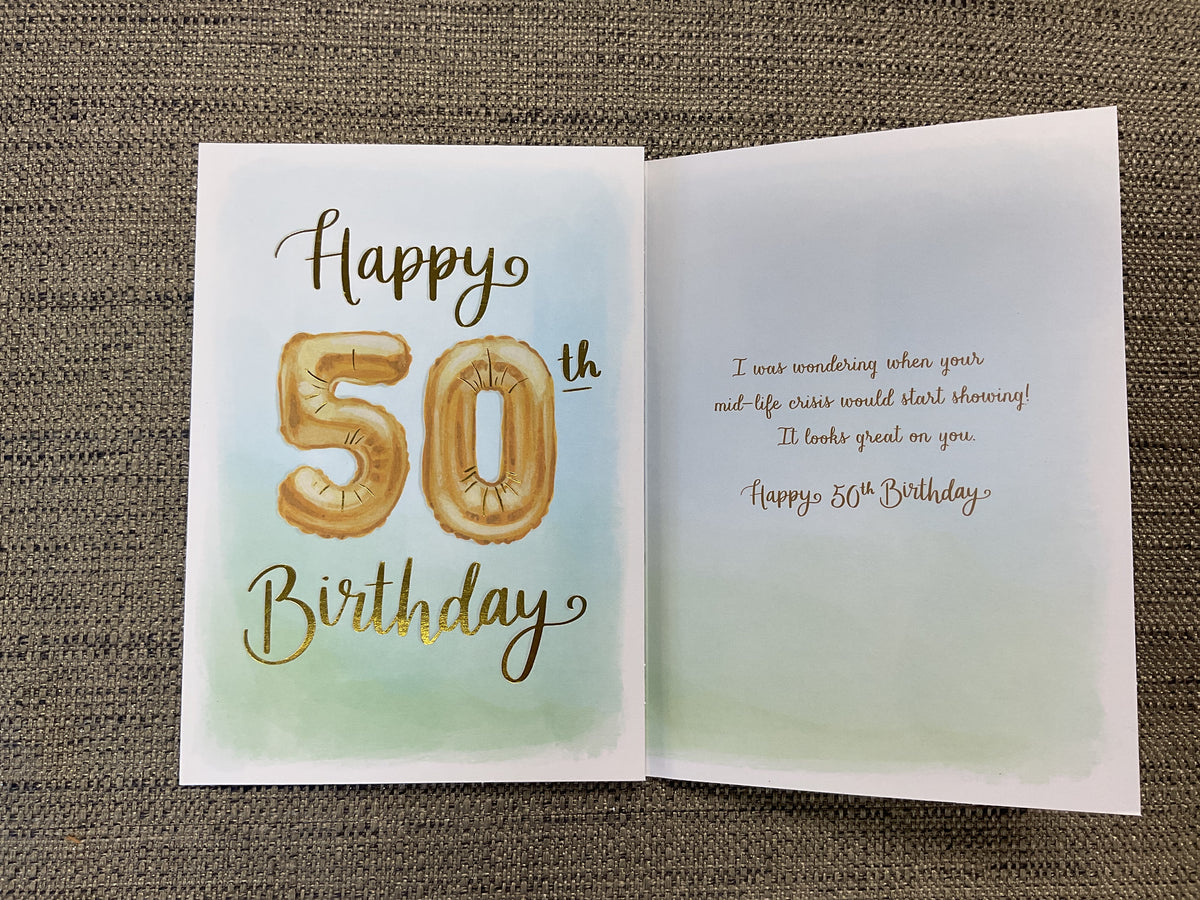 Happy
50th
Birthday
I was wondering when your
mid-life crisis would start showing!
It looks great on you.
Happy 50th Birthday